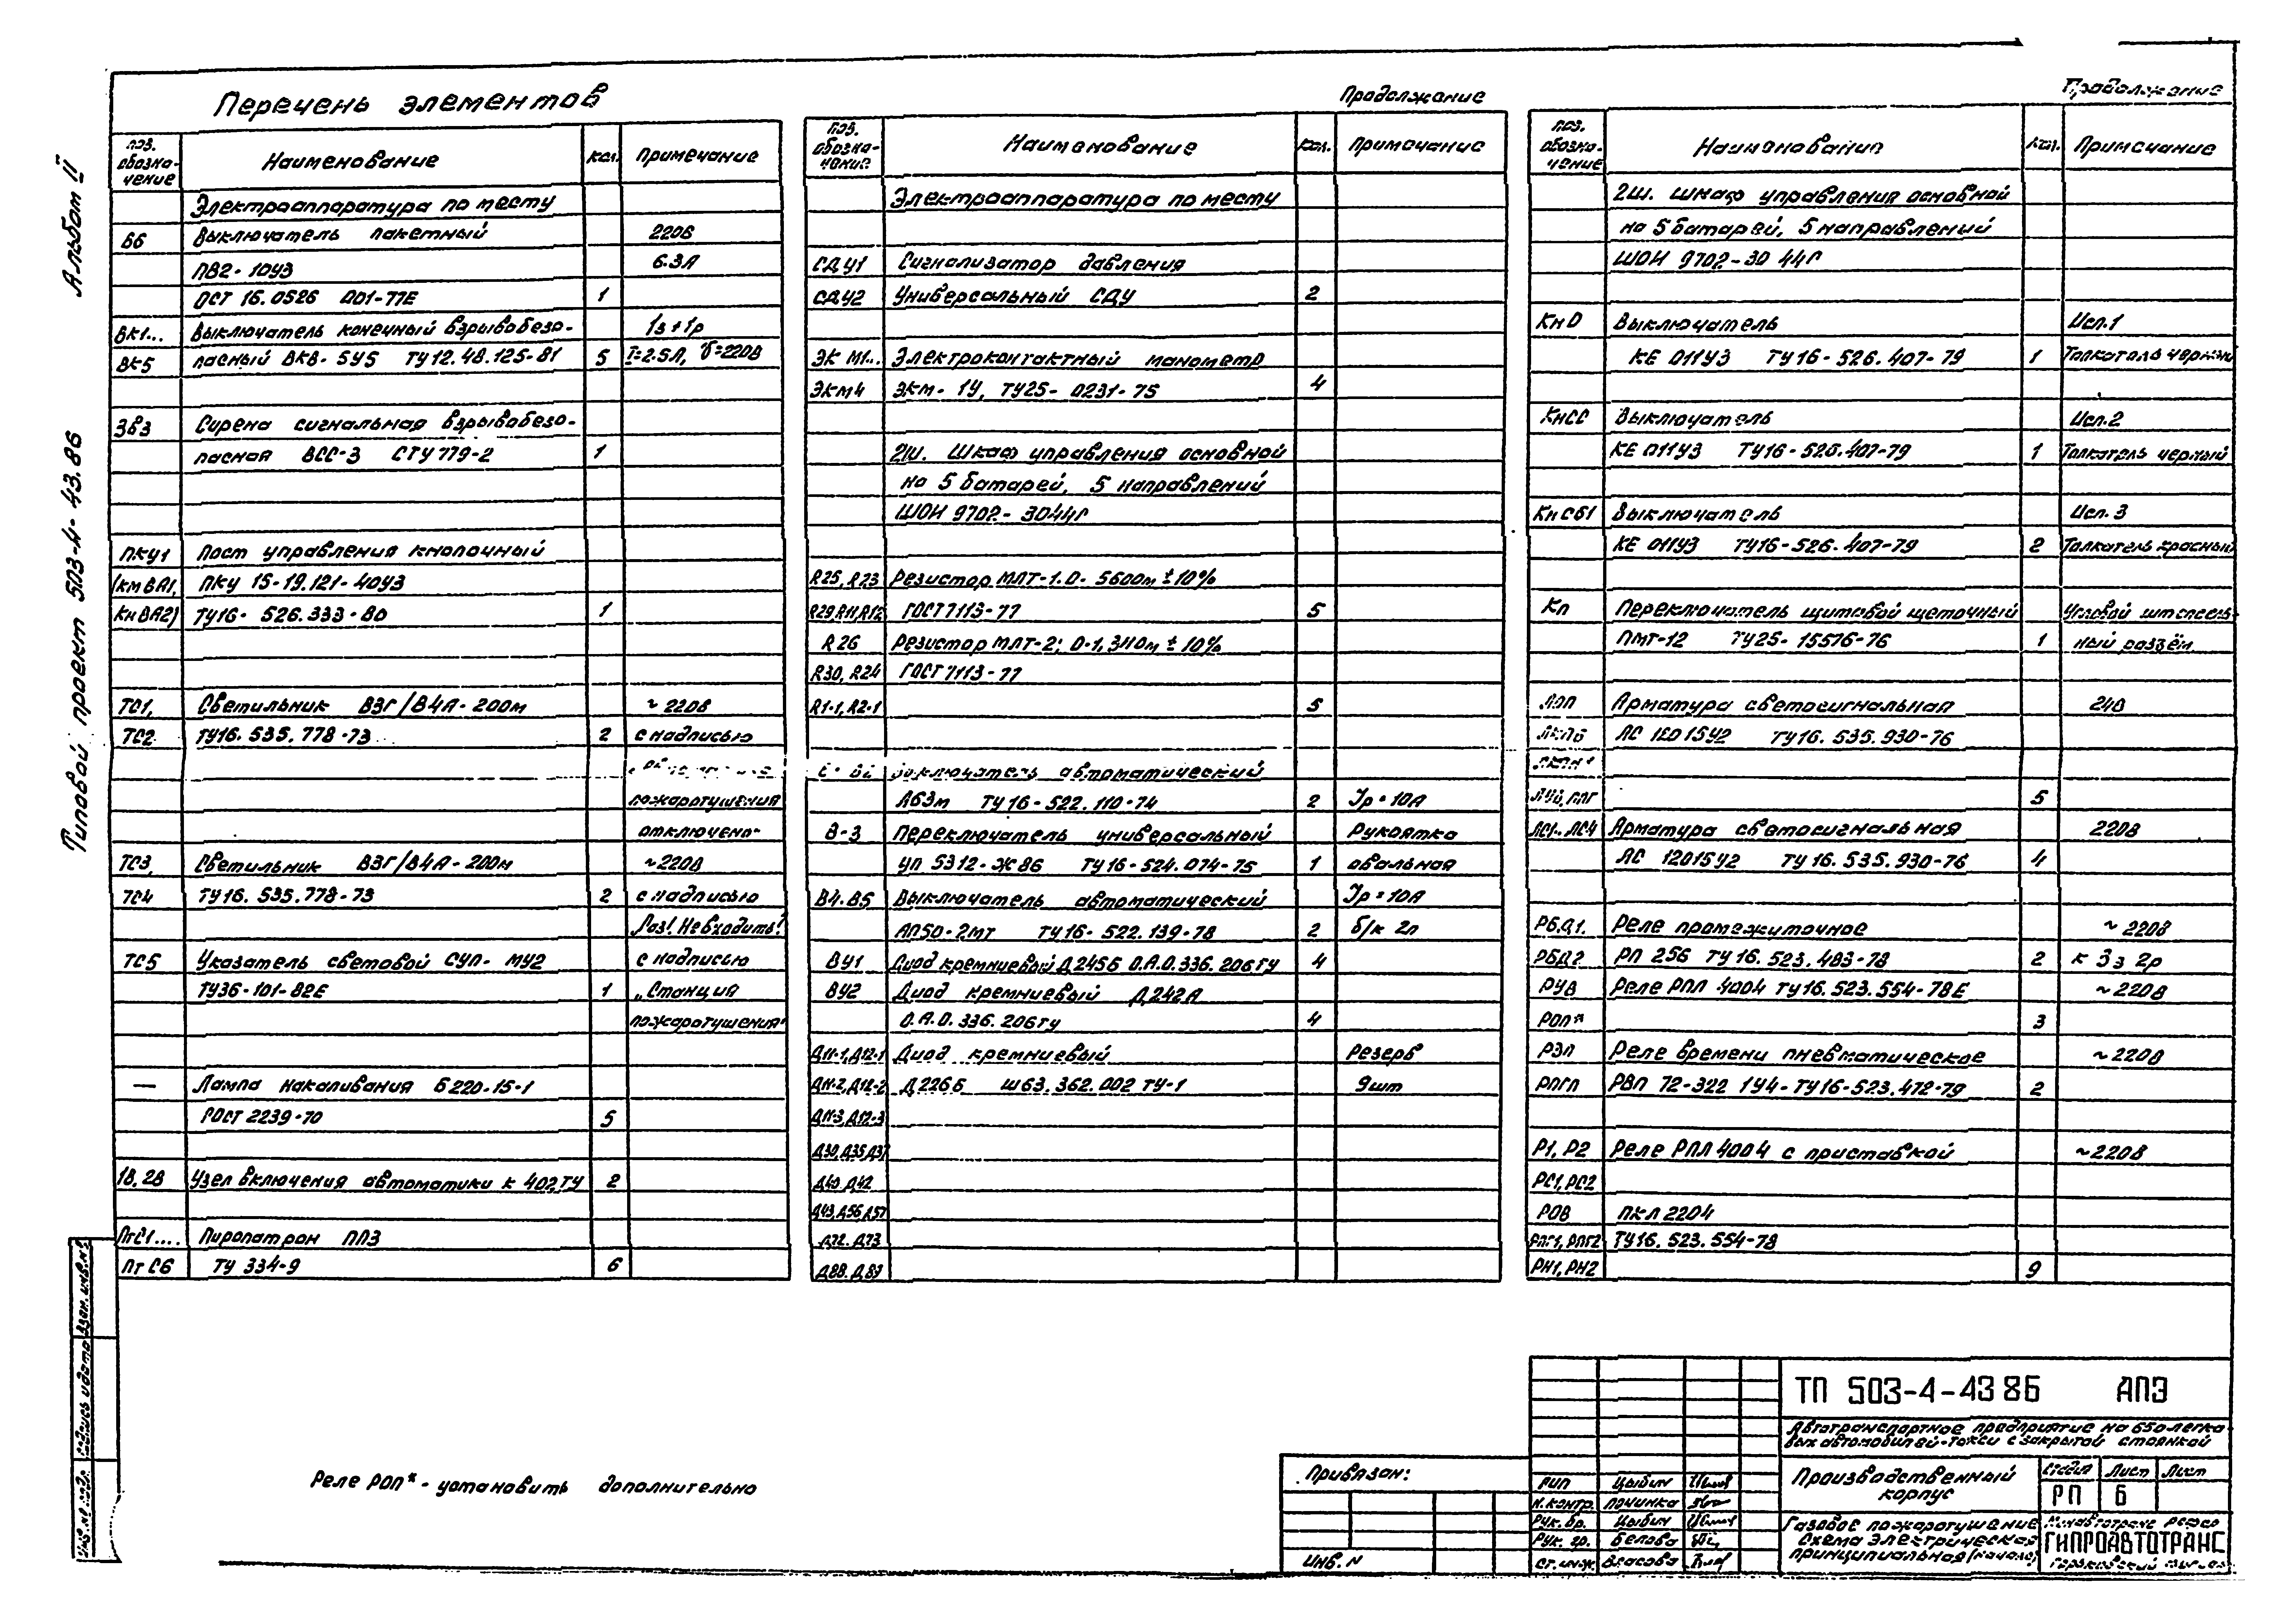 Альбом II
Типовой проект 503-4-43.86
Перечень элементов
поз. обозна-чение Наименование кол. Примечание
Электроаппаратура по месту
В6 Выключатель пакетный 220В
ПВ2-10У3 6.3А
ОСТ 16.0526 001-77Е 1
ВК1... Выключатель конечный взрывобезо- 1з+1р
ВК5 пасный ВКВ-5У5 ТУ12.48.125-81 5 I=2.5А, U=220В
ЗВ3 Сирена сигнальная взрывобезо-
пасная ВСС-3 СТУ 779-2 1
ПКУ1 Пост управления кнопочный
(кмВА1, ПКУ 15-19.121-40У3
КнВА2) ТУ16-526.333-80 1
ТС1, Светильник ВЗГ/В4А-200м ~220В
ТС2 ТУ16.535.778-73 2 с надписью
пожаротушения
отключено"
ТС3, Светильник ВЗГ/В4А-200м ~220В
ТС4 ТУ16.535.778-73 2 с надписью
„Газ! Не входить!"
ТС5 Указатель световой СУП-МУ2 с надписью
ТУ36-101-82Е 1 „Станция
пожаротушения"
— Лампа накаливания Б220-15-1
ГОСТ 2239-70 5
1В, 2В Узел включения автоматики к 402ТУ 2
ПтС1.... Пиропатрон ПП3
ПтС6 ТУ 334-9 6
Продолжение
поз. обозна-чение Наименование кол. Примечание
Электроаппаратура по месту
СДУ1 Сигнализатор давления
СДУ2 Универсальный СДУ 2
ЭКМ1.. Электроконтактный манометр
ЭКМ4 ЭКМ-1У, ТУ25-0231-75 4
2Ш. Шкаф управления основной
на 5 батарей, 5 направлений
ШОИ 9702-3044Г
R25, R23 Резистор МЛТ-1.0-560Ом ±10%
R29,R11,R12 ГОСТ 7113-77 5
R26 Резистор МЛТ-2; 0-1,3КОм ±10%
R30, R24 ГОСТ 7113-77
R1-1, R2-1 5
Выключатель автоматический
А63м ТУ16-522.110-74 2 Iр=10А
В-3 Переключатель универсальный Рукоятка
УП 5312-Ж86 ТУ16-524.074-75 1 овальная
В4.В5 Выключатель автоматический Iр=10А
АП50-2МТ ТУ16-522.139-78 2 б/к 2п
ВУ1 Диод кремниевый Д245Б О.А.О.336.206ТУ 4
ВУ2 Диод кремниевый Д242А
О.А.О.336.206ТУ 4
Д11-1,Д12-1 Диод кремниевый Резерв
Д11-2,Д12-2 Д226Б Ш63.362.002 ТУ-1 9шт
Д11-3,Д12-3
Д30,Д35,Д37
Д40.Д42
Д43,Д56,Д57
Д72.Д73
Д88.Д89
Продолжение
поз. обозна-чение Наименование кол. Примечание
2Ш. Шкаф управления основной
на 5 батарей, 5 направлений
ШОИ 9702-3044Г
КнО Выключатель Исп.1
КЕ 011У3 ТУ16-526.407-79 1 Толкатель черный
КнСС Выключатель Исп.2
КЕ 011У3 ТУ16-526.407-79 1 Толкатель черный
КнСб1 Выключатель Исп.3
КЕ 011У3 ТУ16-526.407-79 2 Толкатель красный
Кп Переключатель щитовой щеточный Угловой штепсель-
ПМТ-12 ТУ25-15576-76 1 ный разъём
Арматура светосигнальная 24В
ЛС 12015У2 ТУ16.535.930-76
5
ЛС1..ЛС4 Арматура светосигнальная 220В
ЛС 12015У2 ТУ16.535.930-76 4
РБД1. Реле промежуточное ~220В
РБД2 РП 256 ТУ16.523.483-78 2 к 3з 2р
РУВ Реле РПЛ 4004 ТУ16.523.554-78Е ~220В
РОП* 3
РЭП Реле времени пневматическое ~220В
РПГП РВП 72-322 1У4-ТУ16-523.472-79 2
Р1, Р2 Реле РПЛ 4004 с приставкой ~220В
РС1,РС2
РОВ ПКЛ 2204
РПГ1,РПГ2 ТУ16.523.554-78
РН1,РН2 9
Реле РОП* - установить дополнительно
Взам. инв. №
Подпись и дата
Инв. № подл.
Привязан:
Инв. N
ГИП Цыбин
Н.контр. Починка
Рук.бр. Цыбин
Рук. гр. Белова
ст.инж. Власова
ТП 503-4-43 86 АПЭ
Автотранспортное предприятие на 650 легко-
вых автомобилей-такси с закрытой стоянкой
Производственный корпус
Стадия Лист Лист
РП 6
Газовое пожаротушение
Схема электрическая
принципиальная (начало)
Минавтотранс РСФСР
ГИПРОАВТОТРАНС
Горьковский филиал